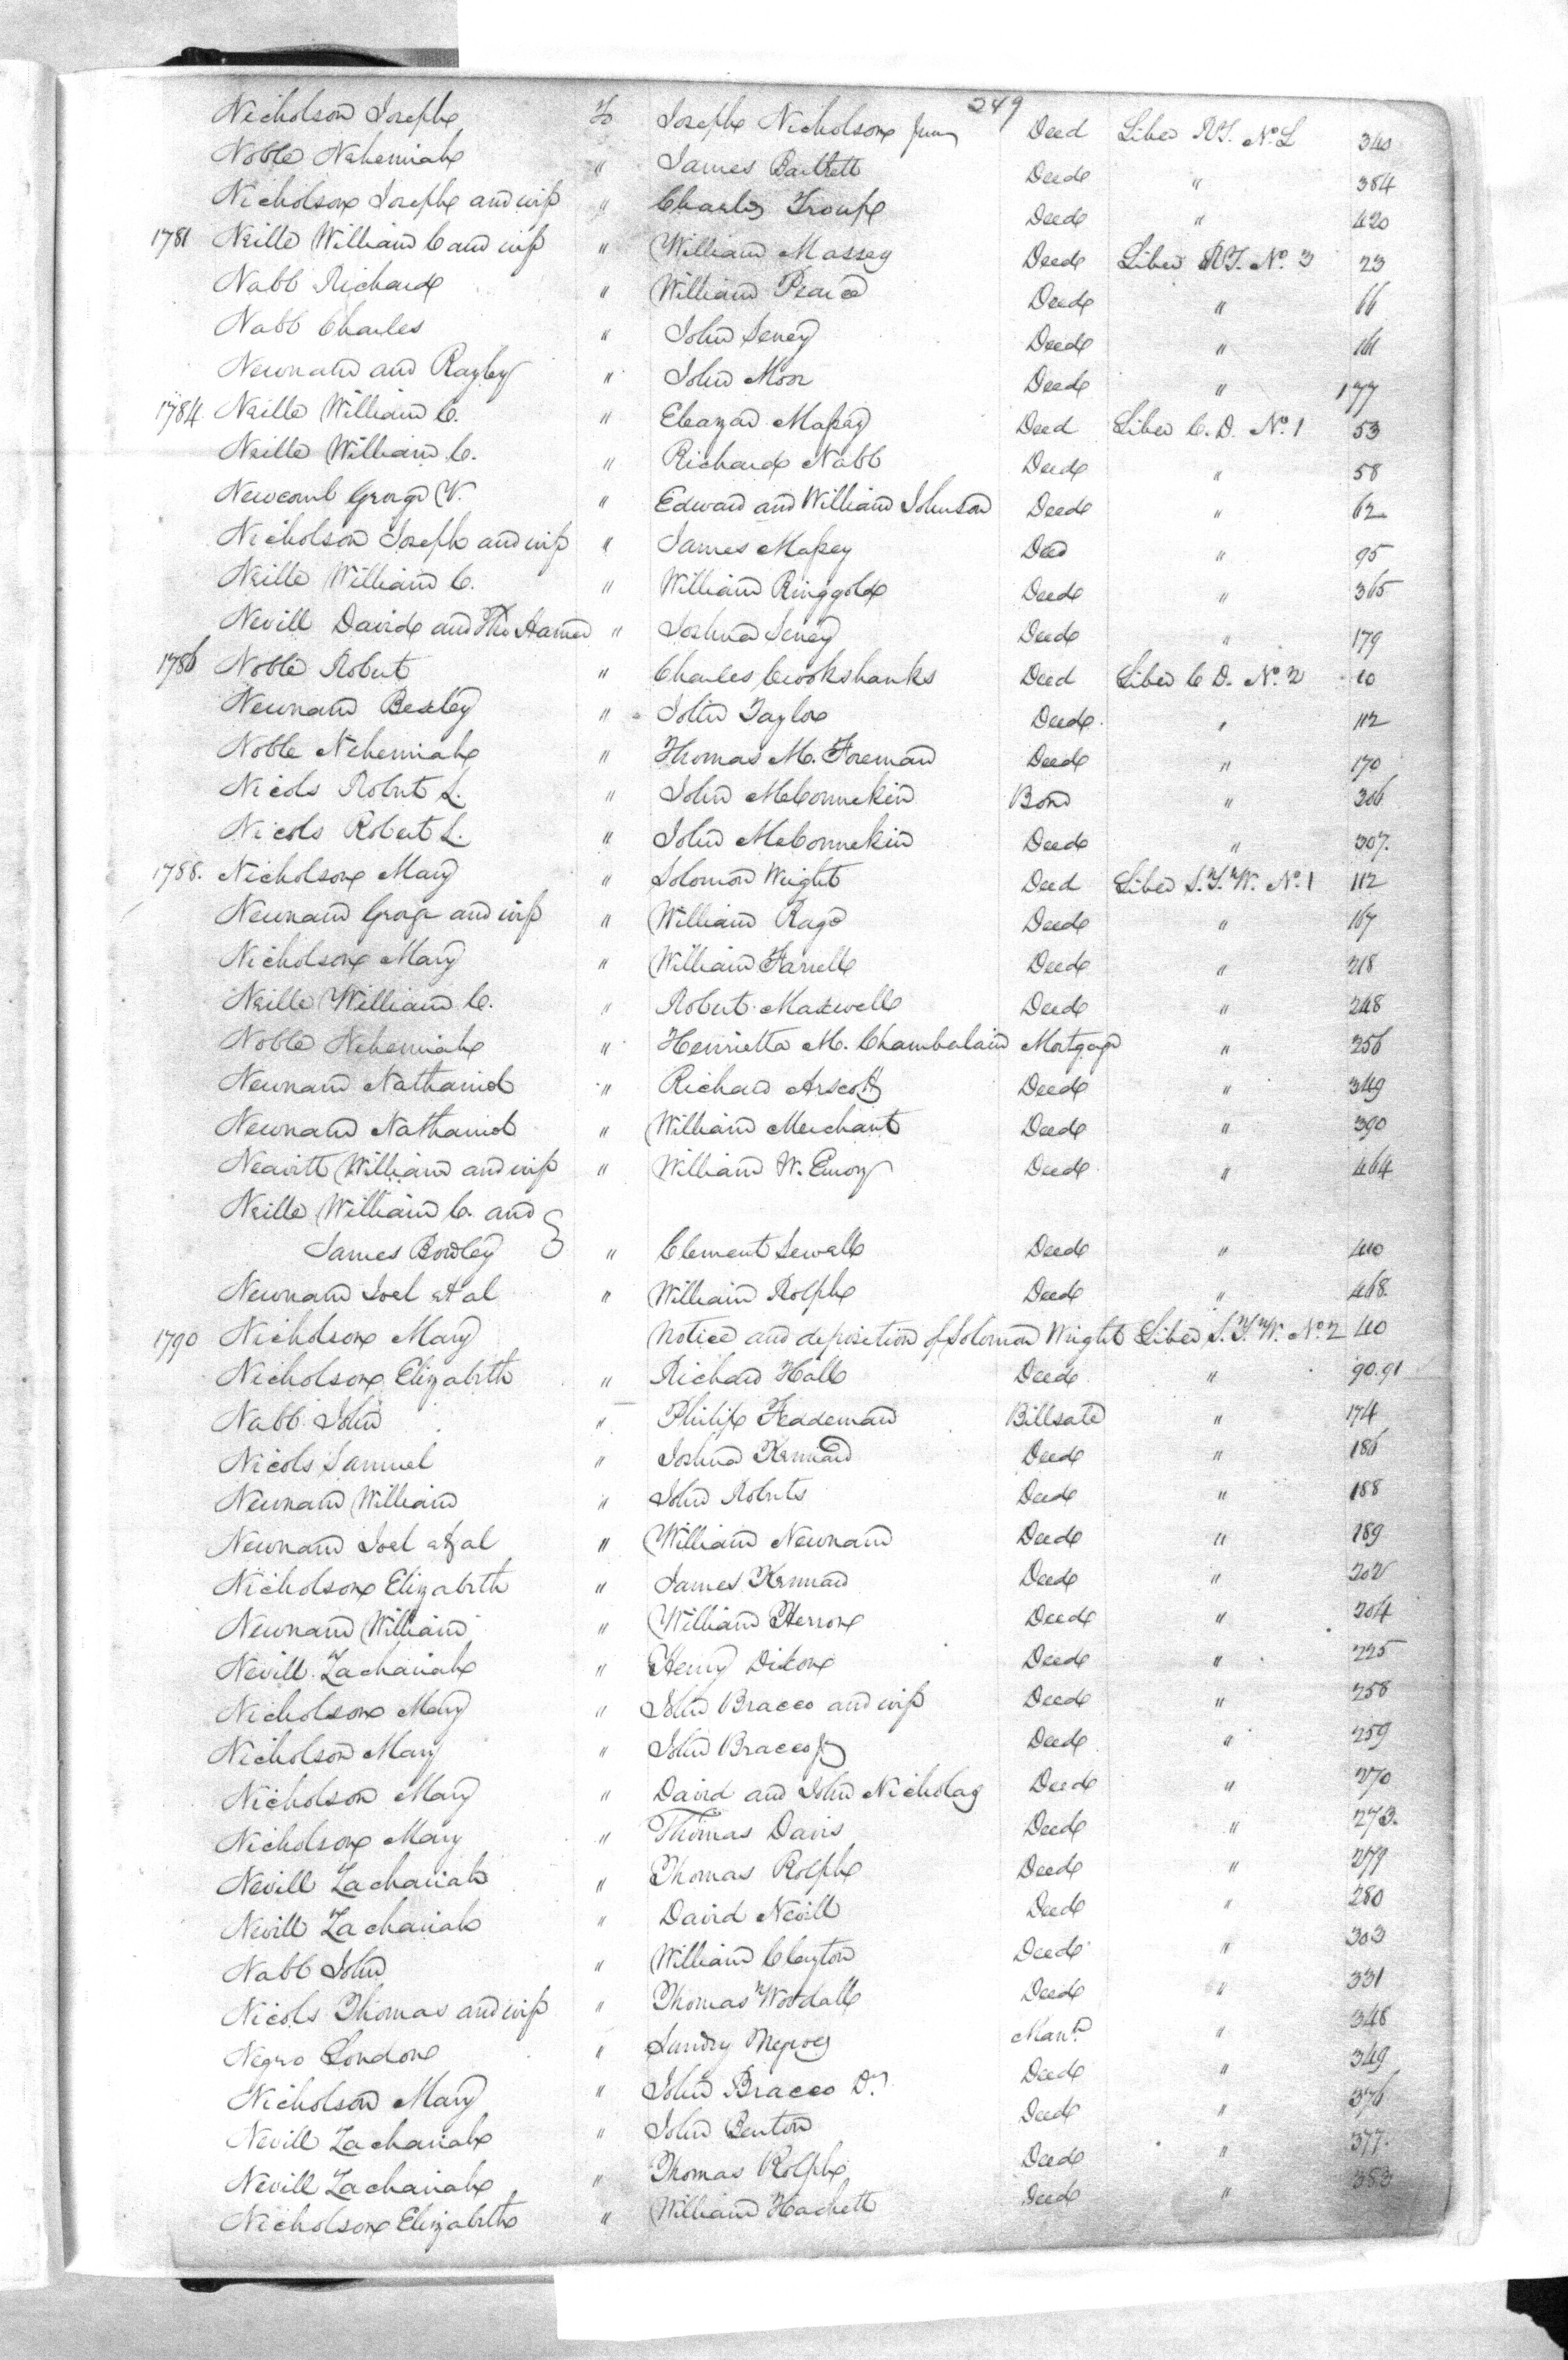 249
Nicholson Joseph To Joseph Nicholson Junr Deed Liber RT. No. L 340
Noble Nehemiah " James Bartlett Deed " 384
Nicholson Joseph and wife " Charles Troup Deed " 420
1781 Neille William C and wife " William Massey Deed Liber RT. No. 3 23
Nabb Richard " William Pearce Deed " 66
Nabb Charles " John Seney Deed " 161
Newnam and Rayley " John Moor Deed " 177
1784 Neille William C. " Eleazar Massey Deed Liber C. D. No. 1 53
Neille William C. " Richard Nabb Deed " 58
Newcomb George V. " Edward and William Johnson Deed " 62
Nicholson Joseph and wife " James Massey Deed " 95
Neille William C. " William Ringgold Deed " 365
Nevill David and Thos " Joshua Seney Deed " 179
1786 Noble Robert " Charles Crookshanks Deed Liber C D. No. 2 10
Newnam Bexley " John Taylor Deed " 112
Noble Nehemiah " Thomas M. Foreman Deed " 170
Nicols Robert L. " John McConnekin Bond " 306
Nicols Robert L. " John McConnekin Deed " 307.
1788. Nicholson Mary " Solomon Wright Deed Liber S.T.W. No. 1 112
Newnam George and wife " William Rage Deed " 167
Nicholson Mary " William Farrell Deed " 218
Neille William C. " Robert Maxwell Deed " 248
Noble Nehemiah " Henrietta M. Chambalain Mortgage " 256
Newnam Nathaniel " Richard Deed " 349
Newnam Nathaniel " William Merchant Deed " 390
Neavitt William and wife " William W. Emory Deed " 464
Neille William C. and
James Bordley " Clement Sewall Deed " 410
Newnam Joel et al " William Rolph Deed " 468.
1790 Nicholson Mary Notice and deposition of Solomon Wright Liber S.T.W. No. 2 40
Nicholson Elizabeth " Richard Hall Deed " 90.91
Nabb John " Philip Feddeman Billsale " 174
Nicols Samuel " Joshua Kennard Deed " 186
Newnam William " John Roberts Deed " 188
Newnam Joel et al " William Newnam Deed " 189
Nicholson Elizabeth " James Kennard Deed " 202
Newnam William " William Herron Deed " 204
Nevill Zachariah " Henry Dixon Deed " 225
Nicholson Mary " John Bracco and wife Deed " 258
Nicholson Mary " John Bracco Jr Deed " 259
Nicholson Mary " David and John Nicholas Deed " 270
Nicholson Mary " Thomas Davis Deed " 273.
Nevill Zachariah " Thomas Rolph Deed " 279
Nevill Zachariah " David Nevill Deed " 280
Nabb John " William Clayton Deed " 303
Nicols Thomas and wife " Thomas Woodall Deed " 331
Negro London " Sundry Negroes Man.n " 348
Nicholson Mary " John Bracco Dr. Deed " 349
Nevill Zachariah " John Benton Deed " 376
Nevill Zachariah " Thomas Rolph Deed " 377.
Nicholson Elizabeth " William Hackett Deed " 383